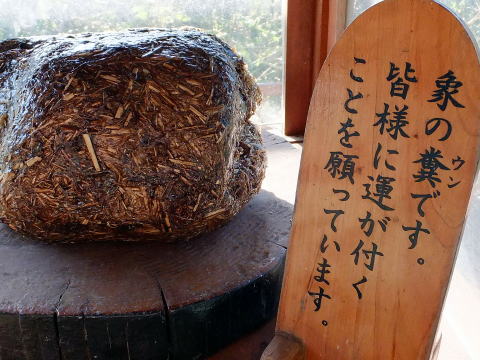 象の糞ウンです。
皆様に運が付く
ことを願っています。